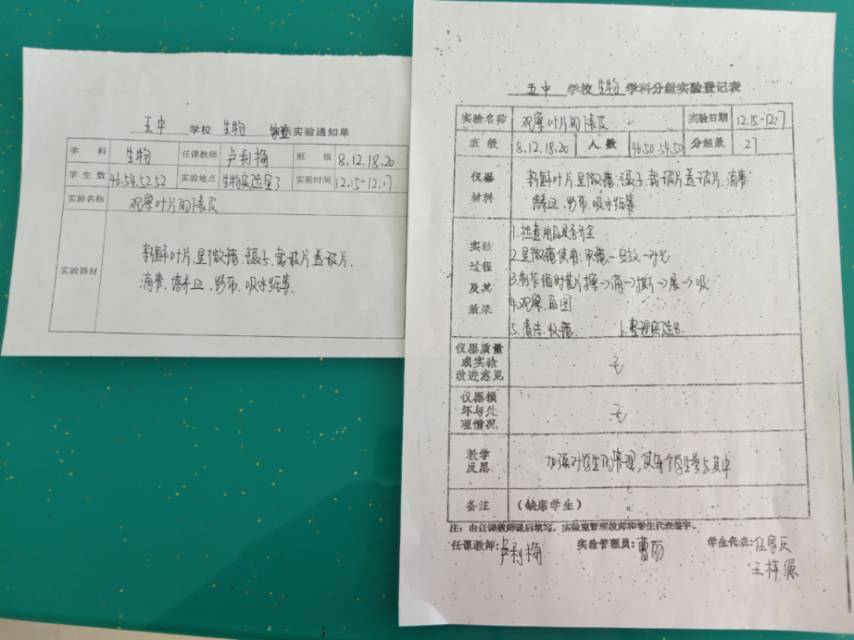 五中 学校 生物 实验通知单
学科 生物 任课教师 卢利梅 班级 8.12.18.20
学生数 46.54.52.52 实验地点 生物实验室3 实验时间 12.15-12.17
实验名称 观察叶片的结构
实验器材 新鲜叶片.显微镜.镊子.载玻片盖玻片.
滴管.培养皿.纱布.吸水纸等.
五中 学校生物学科分组实验登记表
实验名称 观察叶片的结构 实验日期 12.15-12.17
班级 8.12.18.20 人数 46.50.54.50 分组数 27
仪器材料 新鲜叶片.显微镜.镊子.载玻片盖玻片.滴管
培养皿.纱布.吸水纸等
实验过程及其效果 1.检查用品是否齐全
2.显微镜使用:取镜-安放-对光
3.制作临时装片擦→滴→撕→展→盖→吸
4.观察.画图
5.清洁.收镜. 6.整理实验台
仪器质量或实验改进意见 无
仪器损坏与处理情况 无
教学反思 加强对学生的管理,使每个学生参与其中
备注 (缺席学生)
注:由任课教师课后填写,实验室管理教师和学生代表签字。
任课教师:卢利梅 实验管理员:曹丽 学生代表:
王梓源